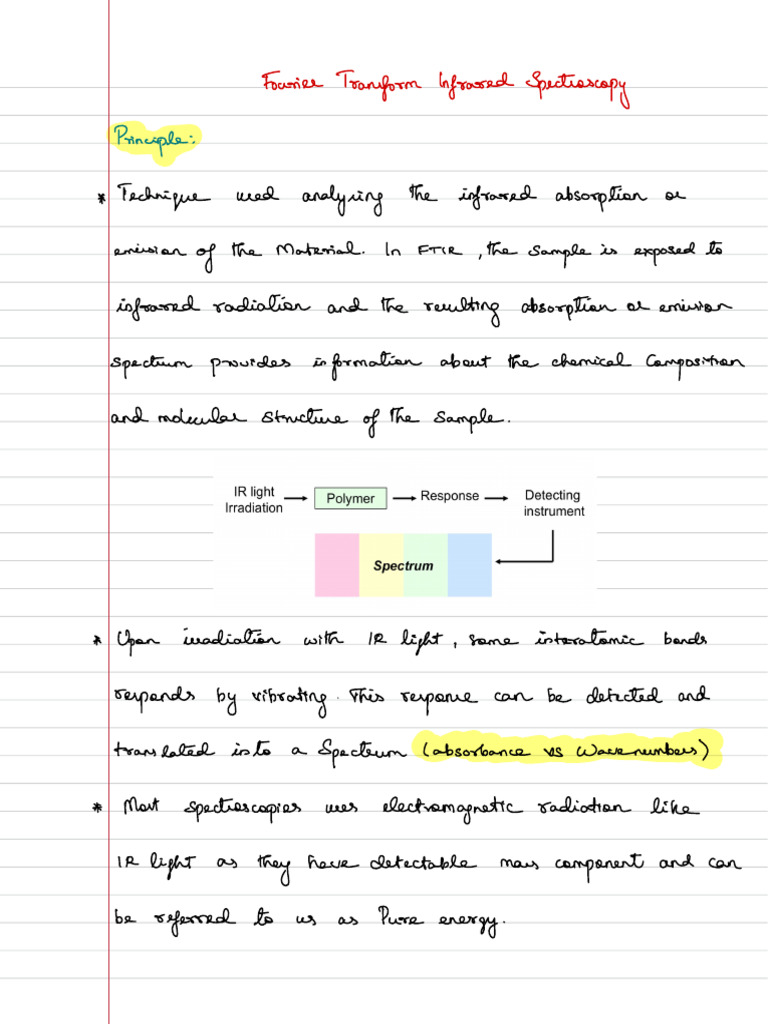 Fourier Transform Infrared Spectroscopy
Principle:
* Technique used analyzing the infrared absorption or
emission of the Material. In FTIR, the Sample is exposed to
infrared radiation and the resulting absorption or emission
spectrum provides information about the chemical Composition
and molecular structure of the Sample.
IR light Irradiation → Polymer → Response → Detecting instrument
Spectrum
* Upon irradiation with IR light, some interatomic bonds
responds by vibrating. This response can be detected and
translated into a Spectrum (absorbance vs Wavenumbers)
* Most spectroscopies uses electromagnetic radiation like
IR light as they have detectable mass component and can
be referred to us as Pure energy.